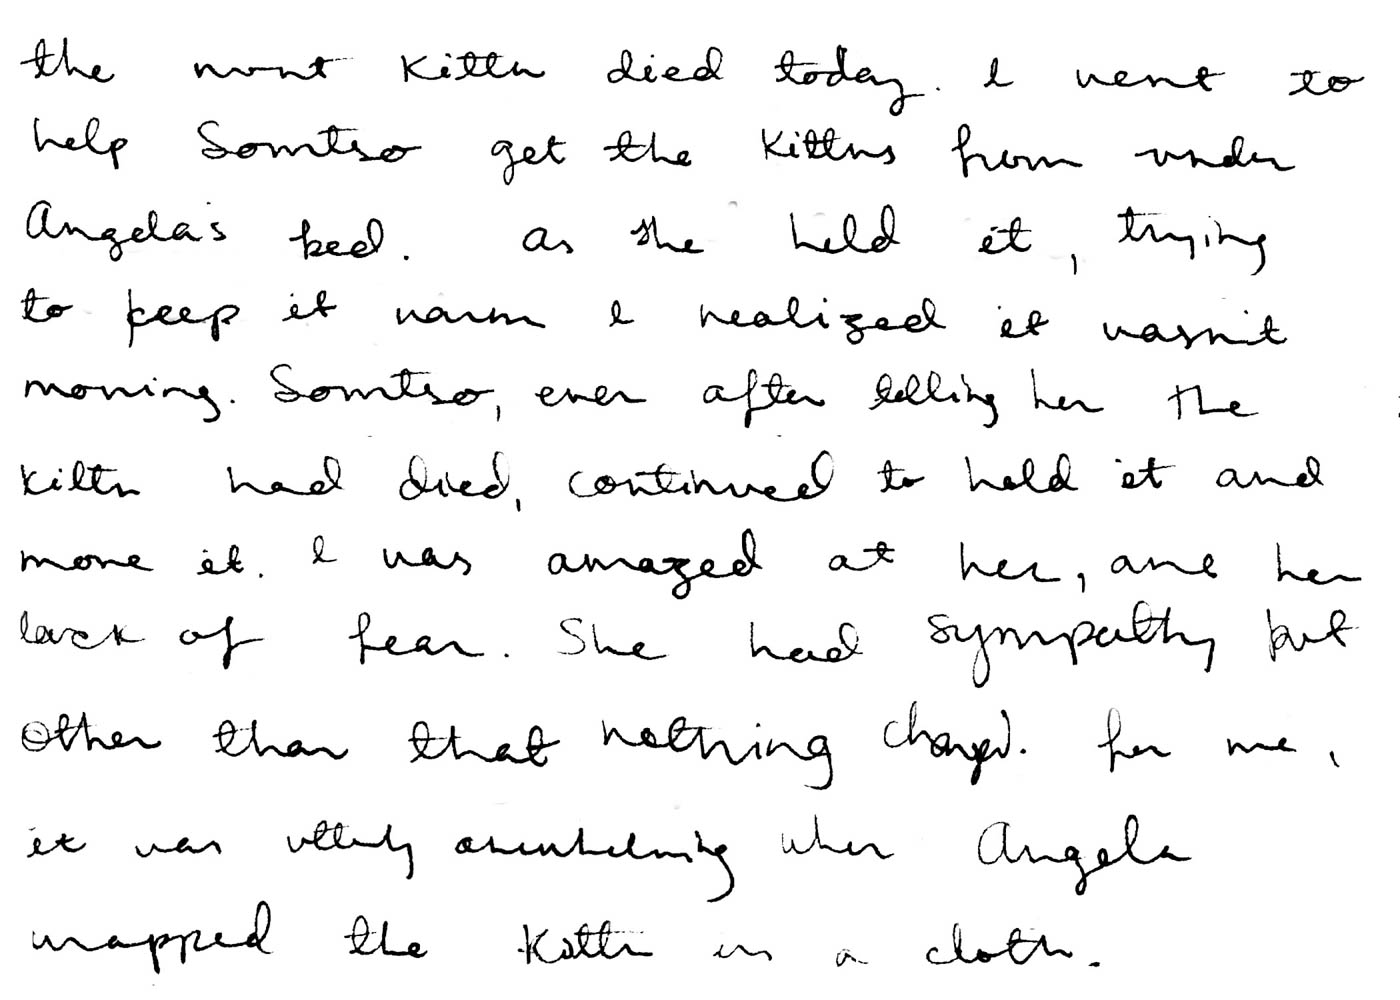 the runt kitten died today. I went to
help Somtso get the kittens from under
Angela's bed. As she held it, trying
to keep it warm I realized it wasn't
moving. Somtso, even after telling her the
kitten had died, continued to hold it and
move it. I was amazed at her, and her
lack of fear. She had sympathy but
other than that nothing changed. For me,
it was utterly overwhelming when Angela
wrapped the kitten in a cloth.